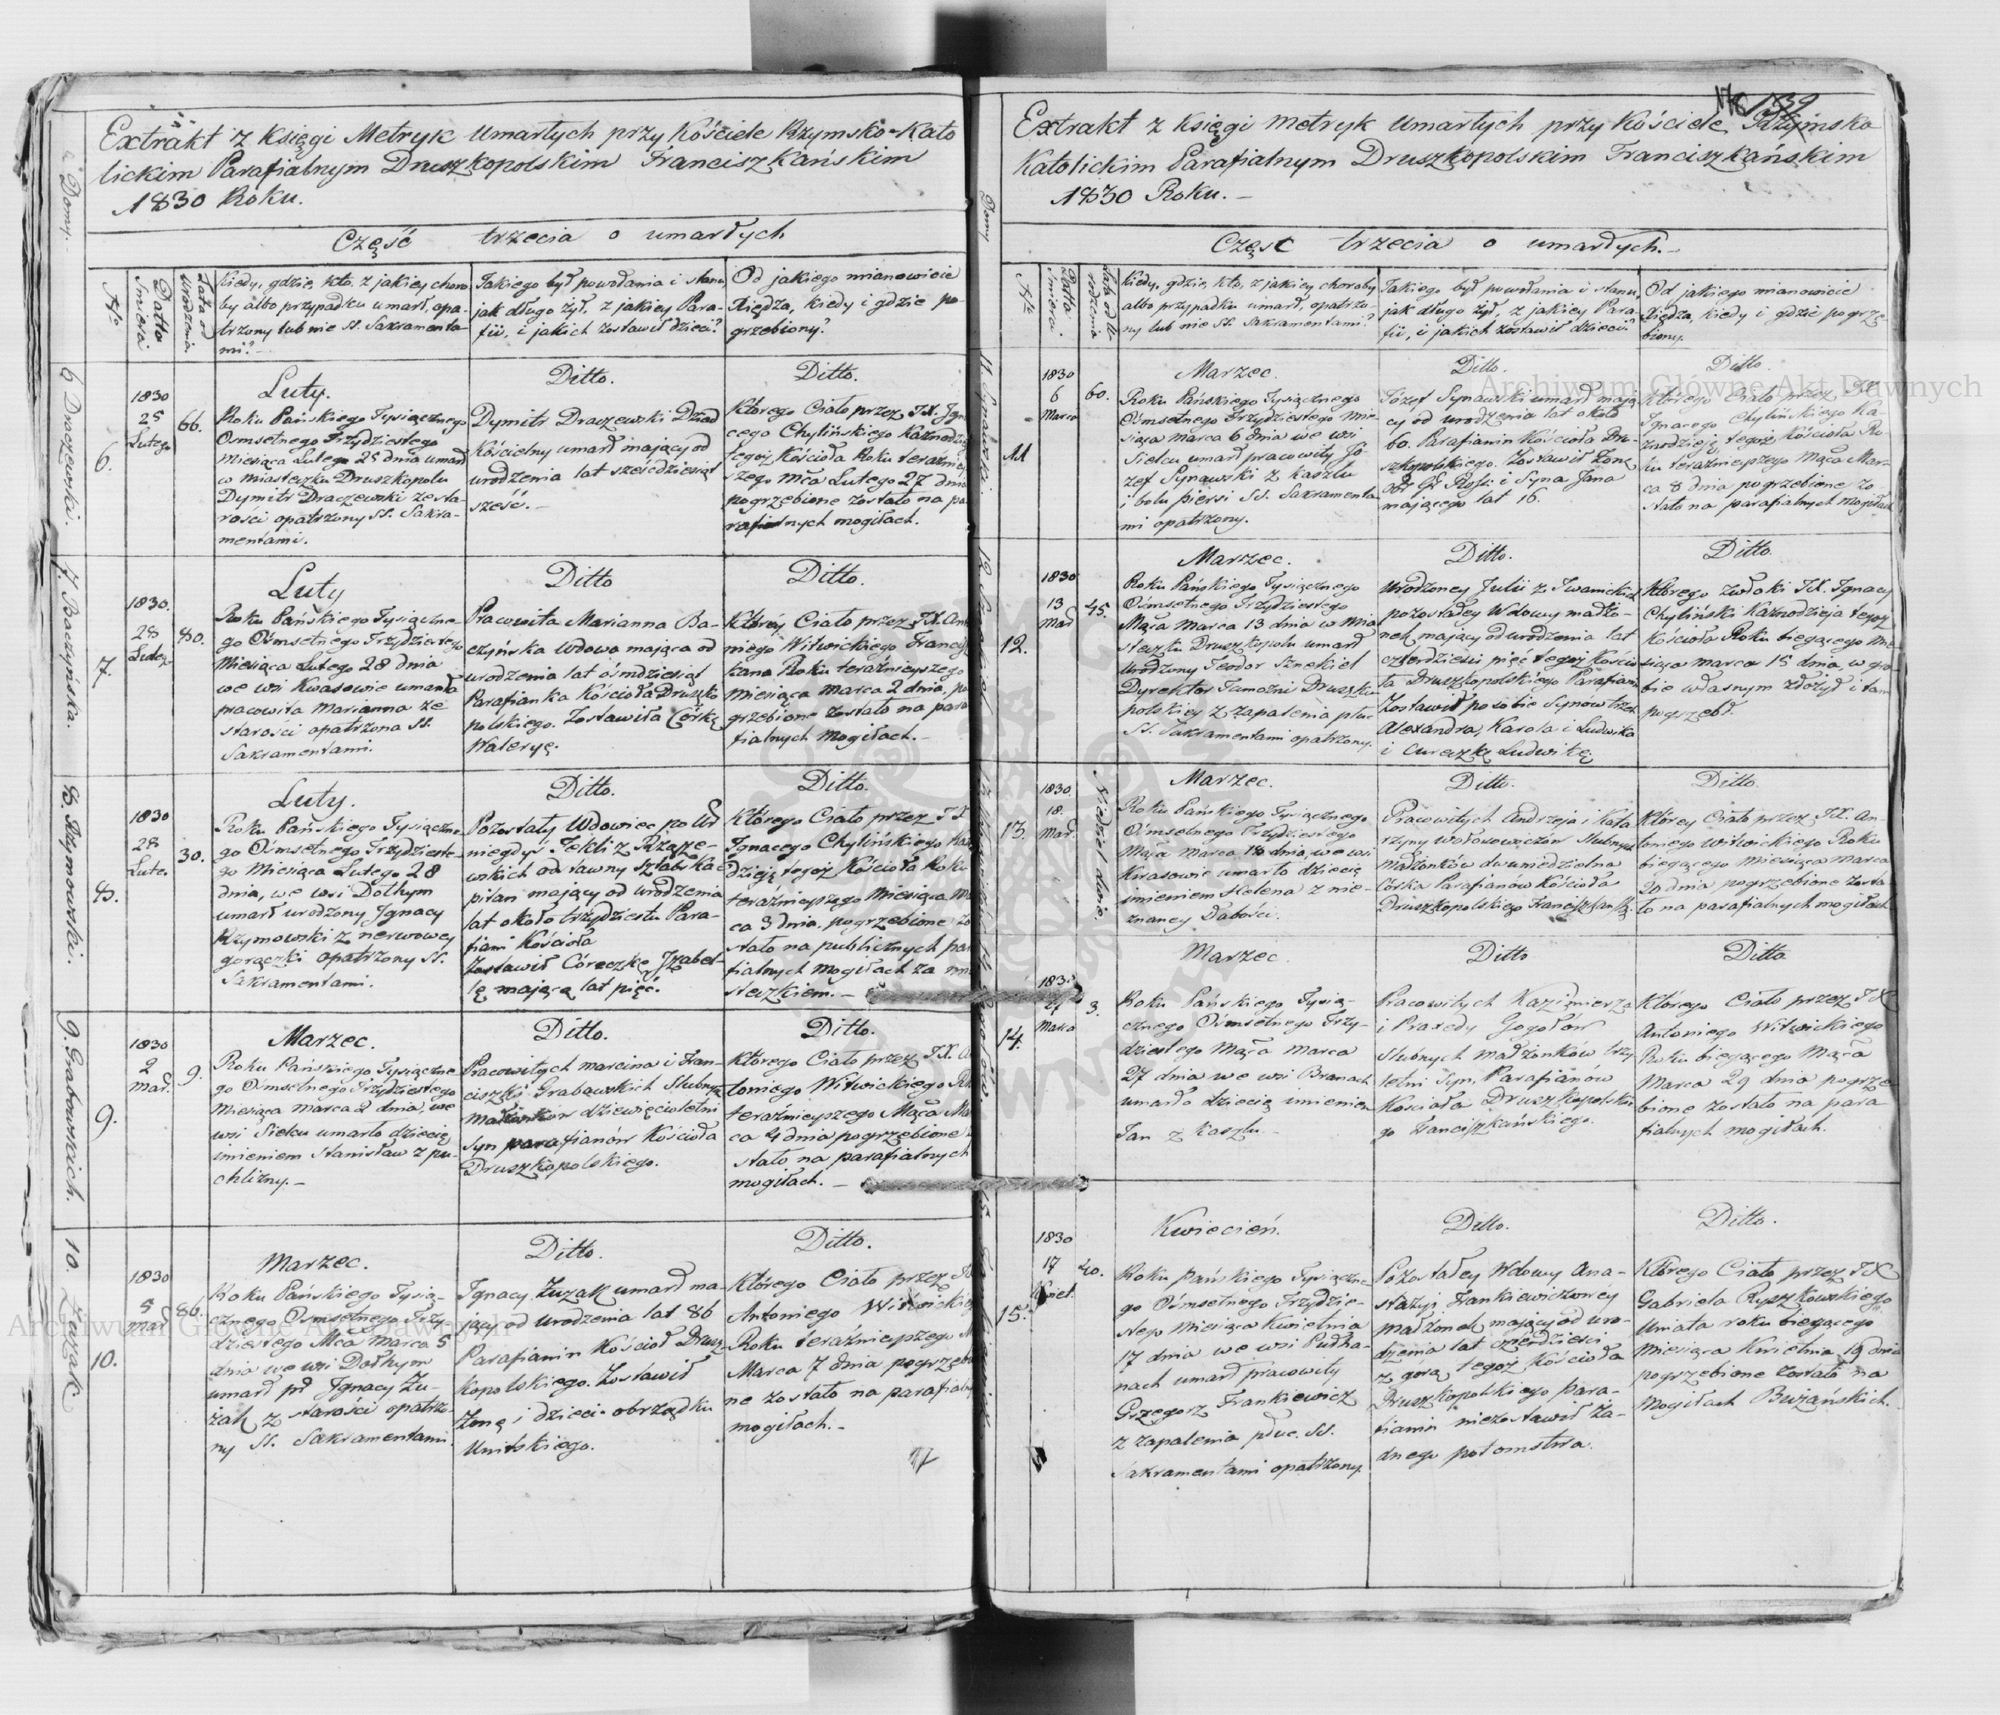 Extrakt z Księgi Metryk Umarłych przy Kościele Rzymsko-Kato
lickim Parafialnym Druszkopolskim Franciszkańskim
1830 Roku.
Domy.
Część trzecia o umarłych
No
Datto Śmierci
Lata od Urodzenia
Kiedy, gdzie, kto, z jakiey choro
by albo przypadku umarł, opa-
trzony lub nie SS. Sakramenta-
mi?
Jakiego był powołania i stanu,
jak długo żył, z jakiey Para-
fii, i jakich zostawił dzieci?
Od jakiego mianowicie
Xiędza, kiedy i gdzie po-
grzebiony?
6 Draczewski.
6.
1830
25
Lutego
66.
Luty.
Roku Pańskiego Tysiącznego
Osmsetnego Trzydziestego
Miesiąca Lutego 25 dnia umarł
w miasteczku Druszkopolu
Dymitr Draczewski ze sta-
rości opatrzony SS. Sakra-
mentami.
Ditto.
Dymitr Draczewski Dziad
Kościelny umarł mający od
urodzenia lat sześćdziesiąt
sześć.-
Ditto.
Którego Ciało przez JX. Igna
cego Chylińskiego Kaznodzie
tegoż Kościoła Roku teraźniey
szego mca Lutego 27 dnia
pogrzebione zostało na pa
rafialnych mogiłach.
7. Baczyńska.
7.
1830.
28
Luteg
80.
Luty
Roku Pańskiego Tysiączne
go Ośmsetnego Trzydziestego
Miesiąca Lutego 28 dnia
we wsi Kwasowie umarła
pracowita Marianna ze
starości opatrzona SS.
Sakramentami.
Ditto
Pracowita Marianna Ba-
czyńska Wdowa mająca od
urodzenia lat ośmdziesiąt
Parafianka Kościoła Druszko
polskiego. Zostawiła Córkę
Waleryę.
Ditto.
Którey Ciało przez JX. Anto
niego Witwickiego Francisz
kana Roku teraźnieyszego
Miesiąca Marca 2 dnia, po
grzebione zostało na para
fialnych Mogiłach.-
8. Rzymowski.
8.
1830
28
Lute.
30.
Luty.
Roku Pańskiego Tysiączne
go Ośmsetnego Trzydzieste-
go Miesiąca Lutego 28
dnia, we wsi Dołhym
umarł urodzony Ignacy
Rzymowski z nerwowey
gorączki opatrzony SS.
Sakramentami.
Ditto.
Pozostały Wdowiec po Ur
niegdyś Tekli z
wskich odstawny Sztabs Ka
pitan mający od urodzenia
lat około trzydziestu Para-
fianin Kościoła
Zostawił Córeczkę Izabel-
lę mającą lat pięć.
Ditto.
Którego Ciało przez JX
Ignacego Chylińskiego Kazn
dzieję tegoż Kościoła Roku
teraźnieyszego Miesiąca Mar
ca 3 dnia, pogrzebione zo
stało na publicznych para
fialnych Mogiłach za mia
steczkiem.-
9. Grabowskich.
9.
1830
2
Mar.
9.
Marzec.
Roku Pańskiego Tysiączne
go Ośmsetnego Trzydziestego
Miesiąca Marca 2 dnia, we
wsi Sielcu umarło dziecię
imieniem Stanisław z pu-
chlizny.-
Ditto.
Pracowitych Marcina i Fran-
ciszki Grabowskich Ślubnych
Małżonków dziewięcioletni
Syn parafianów Kościoła
Druszkopolskiego.
Ditto.
Którego Ciało przez JX. An
toniego Witwickiego Roku
teraźnieyszego Mąca Mar
ca 4 dnia pogrzebione
stało na parafialnych
mogiłach.-
10. Żużak
10.
1830
5
Mar
86.
Marzec.
Roku Pańskiego Tysią-
cznego Osmsetnego Trzy-
dziestego Mca Marca 5
dnia we wsi Dołhym
umarł pr Ignacy Żu-
żak z starości opatrzo-
ny SS. Sakramentami.
Ditto.
Ignacy Żużak umarł ma-
jący od urodzenia lat 86
Parafianin Kościoł Drusz
kopolskiego. Zostawił
Żonę i dzieci obrządku
Unitskiego.
Ditto.
Którego Ciało przez JX
Antoniego Witwickiego
Roku teraźnieyszego M
Marca 7 dnia pogrzebio
ne zostało na parafialny
mogiłach.-
Extrakt z Księgi Metryk Umarłych przy Kościele Rzymsko
Katolickim Parafialnym Druszkopolskim Franciszkańskim
1830 Roku.-
Domy
Część trzecia o umarłych.-
No
Datta Śmierci.
Lata od Urodzenia
Kiedy, gdzie, kto, z jakiey choroby
albo przypadku umarł, opatrzo-
ny lub nie SS. Sakramentami?
Jakiego był powołania i stanu,
jak długo żył, z jakiey Para
fii, i jakich zostawił dzieci?
Od jakiego mianowicie
Xiędza, kiedy i gdzie pogrze-
biony.
11
1830
6
Marca
60.
Marzec.
Roku Pańskiego Tysiącznego
Ośmsetnego Trzydziestego Mie-
siąca Marca 6 dnia we wsi
Sielcu umarł pracowity Jó-
zef Synawski z kaszlu
i bolu piersi SS. Sakramenta
mi opatrzony.
Ditto.
Józef Synawski umarł mają
cy od urodzenia lat około
60. Parafianin Kościoła Dru-
szkopolskiego. Zostawił Żonę
i Syna Jana
mającego lat 16.
Ditto
Którego Ciało przez JX
Ignacego Chylińskiego Ka-
znodzieję tegoż Kościoła Ro-
ku teraźnieyszego Mąca Mar-
ca 8 dnia pogrzebione zo-
stało na parafialnych mogiłach
12.
1830
13
Mar
45.
Marzec.
Roku Pańskiego Tysiącznego
Ośmsetnego Trzydziestego
Mąca Marca 13 dnia w Mia
steczku Druszkopolu umarł
Urodzony Teodor Sznekiel
Dyrektor Tamożni Druszko
polskiey z zapalenia płuc
SS. Sakramentami opatrzony.
Ditto.
Urodzoney Julii z Iwanickich
pozostałey Wdowy małżo-
nek mający od urodzenia lat
czterdzieści pięć tegoż Kościo
ła Druszkopolskiego Parafianin
Zostawił po sobie Synów trzech
Alexandra, Karola i Ludwika
i Cureczkę Ludwikę
Ditto
Którego zwłoki JX. Ignacy
Chyliński Kaznodzieja tegoż
Kościoła Roku biegącego Mie
siąca Marca 15 dnia, w gro
bie własnym złożył i tam
pogrzebł.
13
1830.
18.
Mar.
Niedziel dwie.
Marzec.
Roku Pańskiego Tysiącznego
Ośmsetnego Trzydziestego
Mąca Marca 18 dnia, we wsi
Kwasowie umarło dziecię
imieniem Helena z nie-
znaney słabości.
Ditto.
Pracowitych Andrzeja i Kata
rzyny Wołosowiczów Ślubnych
Małżonków dwuniedzielna
Córka Parafianów Kościoła
Druszkopolskiego
Ditto
Którey Ciało przez JX. An-
toniego Witwickiego Roku
biegącego Miesiąca Marca
20 dnia pogrzebione zosta-
ło na parafialnych mogiłach
14.
1830
27
Marca
3.
Marzec
Roku Pańskiego Tysią-
cznego Ośmsetnego Trzy-
dziestego Mąca Marca
27 dnia we wsi Branach
umarło dziecię imieniem
Jan z Kaszlu.-
Ditto
Pracowitych Kazimierza
i Praxedy Gogołów
Ślubnych małżonków trzy
letni Syn, Parafianów
Kościoła Druszkopolskie
go Franciszkańskiego.
Ditto
Którego Ciało przez JX
Antoniego Witwickiego
Roku biegącego Mąca
Marca 29 dnia pogrze
bione zostało na para
fialnych mogiłach.
15.
1830
17
Kwiet.
40.
Kwiecień.
Roku Pańskiego Tysiączne
go Ośmsetnego Trzydzie-
stego Miesiąca Kwietnia
17 dnia we wsi Pułha-
nach umarł pracowity
Grzegorz Frankiewicz
z zapalenia płuc. SS.
Sakramentami opatrzony.
Ditto.
Pozostałey Wdowy Ana-
stazyi Frankiewiczowey
małżonek mający od uro-
dzenia lat czterdzieści
z górą tegoż Kościoła
Druszkopolskiego Para-
fianin niezostawił ża-
dnego potomstwa.
Ditto.
Którego Ciało przez JX
Gabriela Ryszkowskiego
Uniata roku biegącego
Miesiąca Kwietnia 19 dnia
pogrzebione zostało na
Mogiłach Bużańskich.
Archiwum Główne Akt Dawnych
Archiwum Główne Akt Dawnych